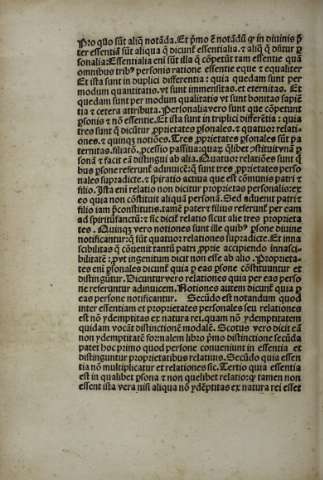 Pro quo sūt aliq̄ notāda. Et p̄mo ē notādū ꝙ in divinis p̄ter
essentiā sūt aliqua q̄ dicunt̄ essentialia. ⁊ aliq̄ q̄ dn̄tur p̄
sonalia: Essentialia eni sūt illa q̄ cōpetūt tam essentie quā
omnibus trib⁹ personis ratione essentie eque ⁊ equaliter
Et ista sunt in duplici differentia : quia quedam sunt per
modum quantitatis. vt sunt immensitas. et eternitas. Et
quedam sunt per modum qualitatis vt sunt bonitas sapiē
tia ⁊ cetera attributa. Personalia vero sunt que cōpetunt
p̄sonis ⁊ nō essentie. Et ista sunt in triplici differētia : quia
tres sunt q̄ dicūtur ꝓprietates p̄sonales. ⁊ quatuor relati-
ones. ⁊ quinqꝫ notiōes. Tres ꝓprietates p̄sonales sūt pa
ternitas. filiatō. ꝓcessio passiua: quaꝝ q̄libet ꝯstituit vnā p̄
sonā ⁊ facit eā distingui ab alia. Quatuor relatiōes sunt q̄
bus p̄sone referunt̄ adiuuicē: q̄ sunt tres ꝓprietates perso
nales supradicte. ⁊ spiratio actiua que est cōmunis patri ⁊
filio. Ista eni relatio non dicitur proprietas personalis: ex
eo quia non cōstituit aliquā personā. Sed aduenit patri ⁊
filio iam p̄constitutis. tamē pater ⁊ filius referunt̄ per eam
ad spiritūsanctū: ⁊ sic dicit̄ relatio sicut alie tres proprieta
tes . Quinqꝫ vero notiones sunt ille quib⁹ p̄sone diuine
notificantur: q̄ sūt quatuor relationes supradicte. Et inna
scibilitas q̄ cōuenit tantū patri ꝓprie accipiendo innasci-
bilitatē : ꝓut ingenitum dicit non esse ab alio . Proprieta-
tes eni p̄sonales dicunt̄ quia p̄ eas p̄sone cōstituuntur et
distingūtur. Dicuntur vero relationes quia per eas perso
ne referuntur adinuicem. Notiones autem dicunt̄ quia p̄
eas persone notificantur. Secūdo est notandum quod
inter essentiam et proprietates personales seu relationes
est nō ydemptitas ex natura rei. quam nō ydemptitatem
quidam vocāt distinctionē modalē. Scotus vero dicit eā
non ydemptitatē formalem libro p̄mo distinctione secūda
patet hoc primo quod persone conueniunt in essentia et
distinguntur proprietatibus relatiuis. Secūdo quia essen
tia nō multiplicatur et relationes sic. Tertio quia essentia
est in qualibet p̄sona ⁊ non quelibet relatio: ꝙ tamen non
essent ista vera nisi aliqua nō ydēptitas ex natura rei esset